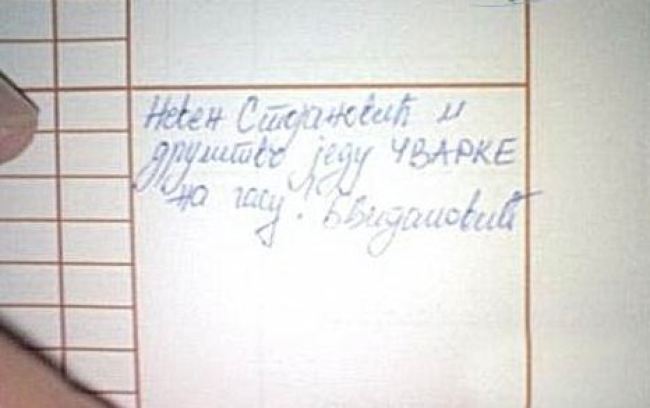 Невен Стојановић и
друштво једу ЧВАРКЕ
на часу! БВидановић